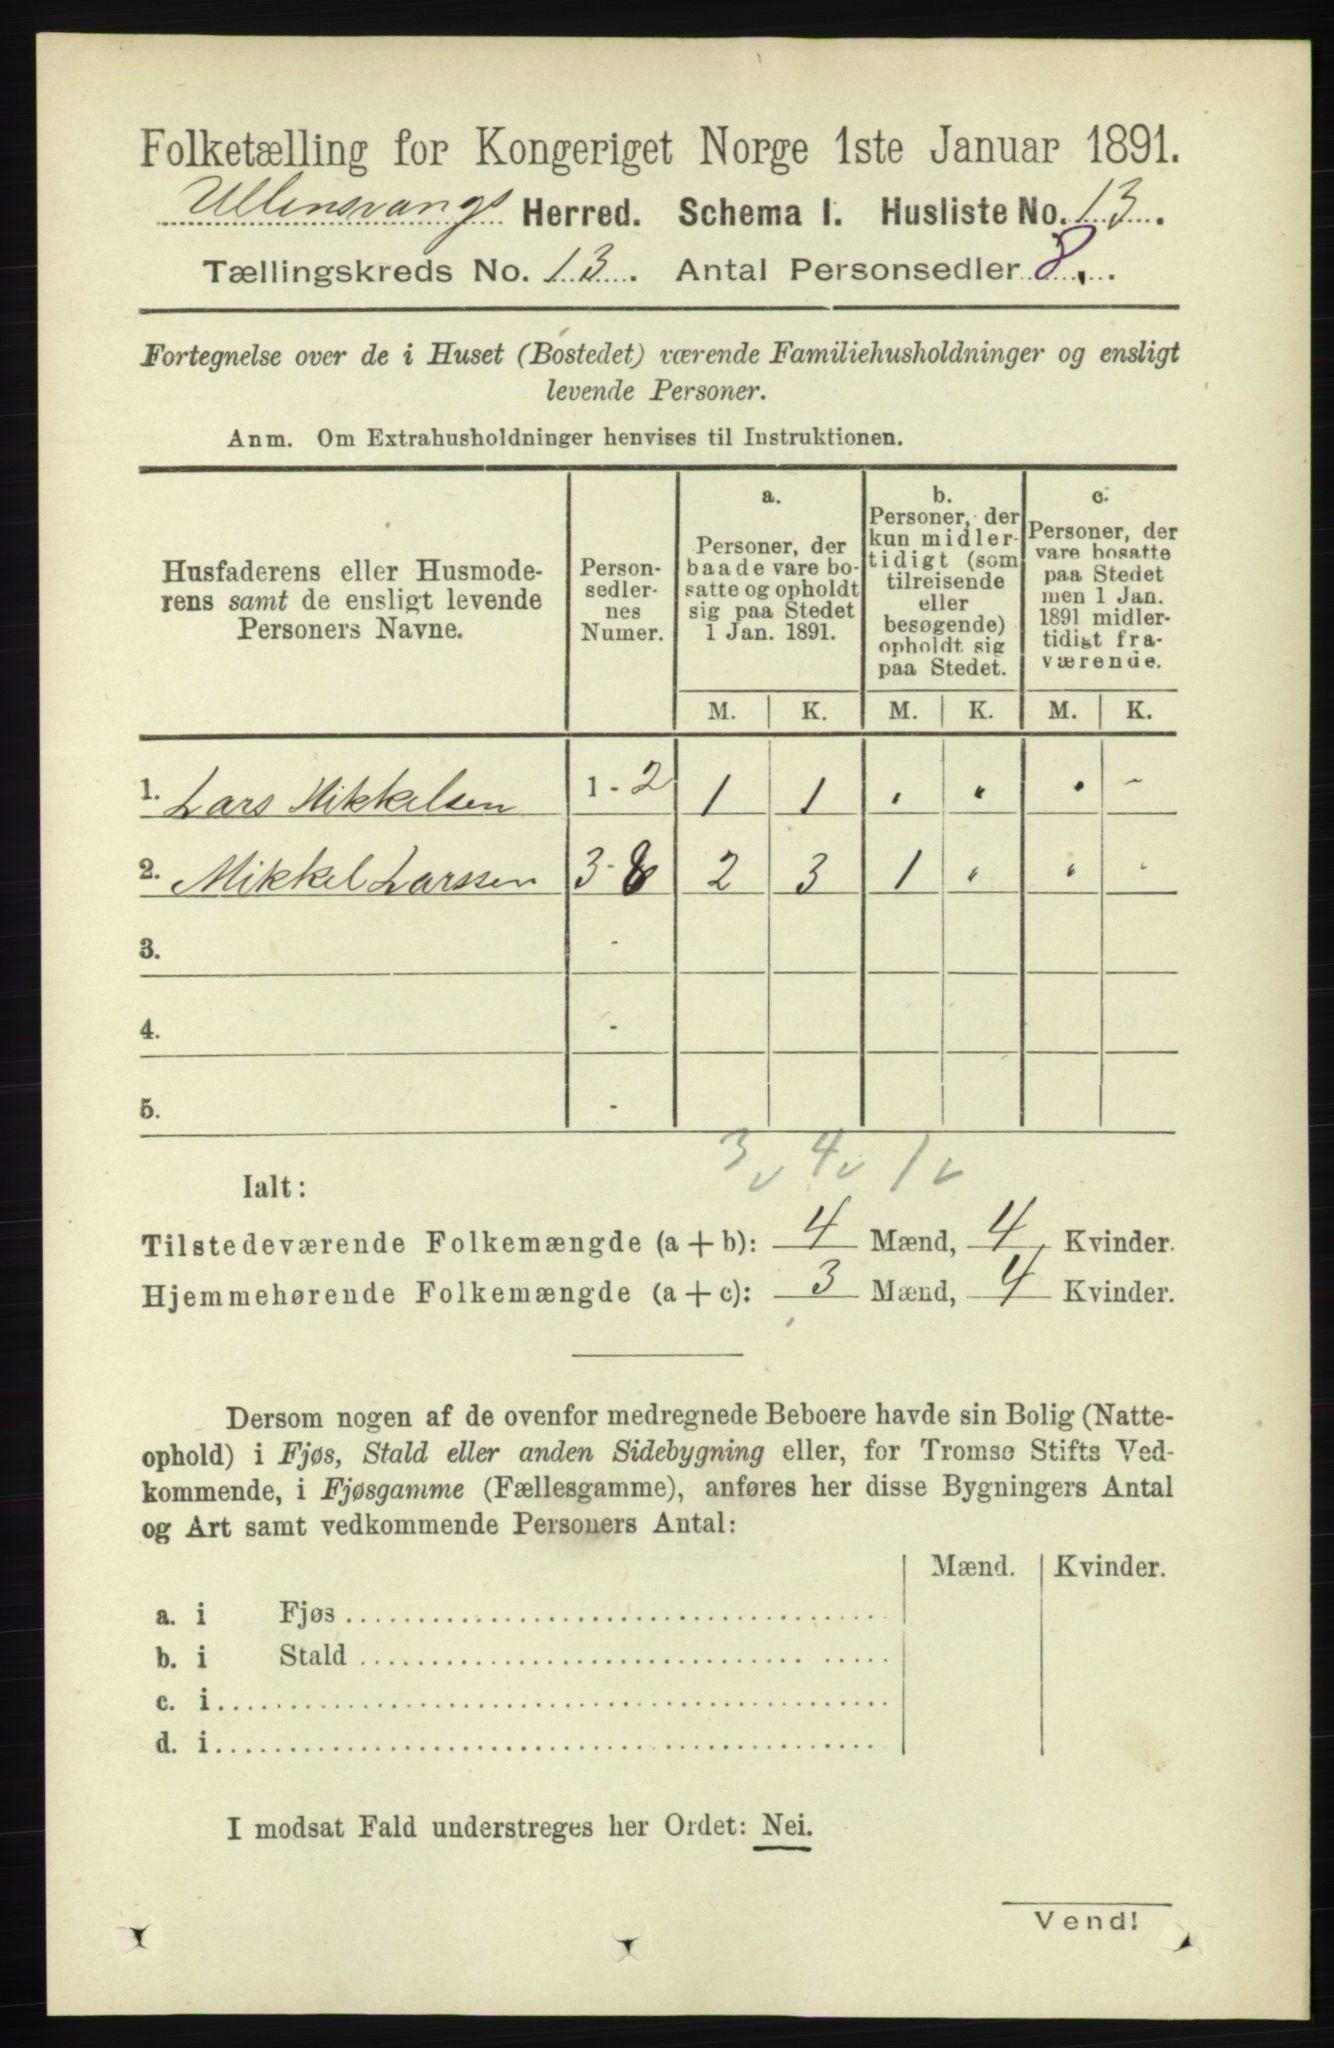 Folketælling for Kongeriget Norge 1ste Januar 1891.
Ullensvangs Herred. Schema I. Husliste No. 13.
Tællingskreds No. 13. Antal Personsedler 8.
Fortegnelse over de i Huset (Bostedet) værende Familiehusholdninger og ensligt
levende Personer.
Anm. Om Extrahusholdninger henvises til Instruktionen.
Husfaderens eller Husmode-
rens samt de ensligt levende
Personers Navne.
Person-
sedler-
nes
Numer.
a.
Personer, der
baade vare bo-
satte og opholdt
sig paa Stedet
1 Jan. 1891.
b.
Personer, der
kun midler-
tidigt (som
tilreisende
eller
besøgende)
opholdt sig
paa Stedet.
c.
Personer, der
vare bosatte
paa Stedet
men 1 Jan.
1891 midler-
tidigt fra-
værende.
M. K. M. K. M. K.
1. Lars Mikkelsen 1-2 1 1 " " " -
2. Mikkel Larssen 3-8 2 3 1 " " "
3. -
4. -
5. -
3 4 1
Ialt:
Tilstedeværende Folkemængde (a + b): 4 Mænd, 4 Kvinder.
Hjemmehørende Folkemængde (a + c): 3 Mænd, 4 Kvinder.
Dersom nogen af de ovenfor medregnede Beboere havde sin Bolig (Natte-
ophold) i Fjøs, Stald eller anden Sidebygning eller, for Tromsø Stifts Ved-
kommende, i Fjøsgamme (Fællesgamme), anføres her disse Bygningers Antal
og Art samt vedkommende Personers Antal:
Mænd. Kvinder.
a. i Fjøs
b. i Stald
c. i
d. i
I modsat Fald understreges her Ordet: Nei.
Vend!